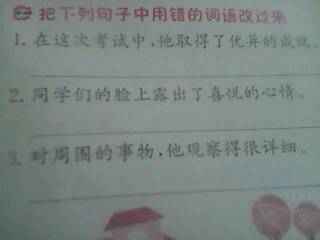 把下列句子中用错的词语改过来
1. 在这次考试中,他取得了优异的成就。
2. 同学们的脸上露出了喜悦的心情。
3. 对周围的事物,他观察得很详细。